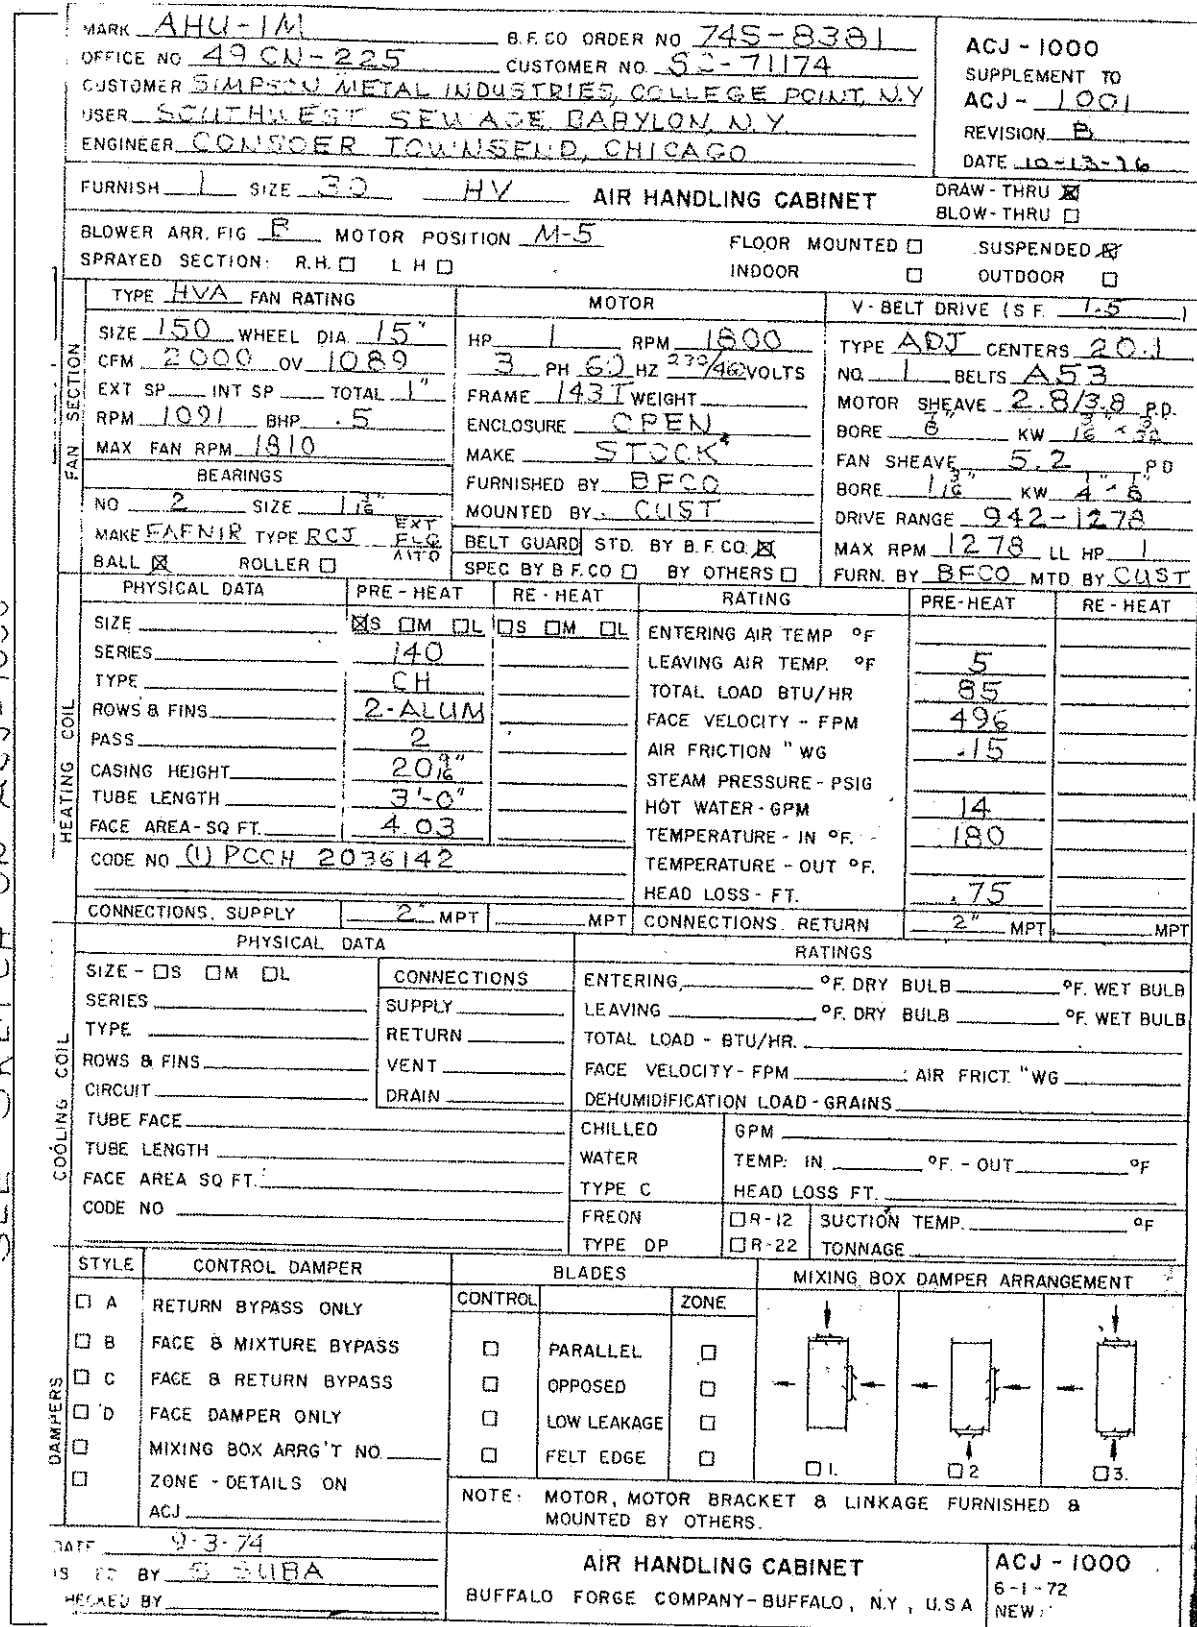 MARK AHU-1M
B.F.CO ORDER NO 74S-8381
OFFICE NO 49 CN-225
CUSTOMER NO. SC-71174
CUSTOMER SIMPSON METAL INDUSTRIES, COLLEGE POINT, N.Y
USER SOUTHWEST SEWAGE BABYLON, N.Y.
ENGINEER CONSOER TOWNSEND, CHICAGO
ACJ - 1000
SUPPLEMENT TO
ACJ - 1001
REVISION B
DATE 10-13-76
FURNISH 1 SIZE 30 HV AIR HANDLING CABINET
DRAW - THRU ☒
BLOW - THRU ☐
BLOWER ARR. FIG B MOTOR POSITION M-5 FLOOR MOUNTED ☐ SUSPENDED ☒
SPRAYED SECTION: R.H. ☐ L H ☐ INDOOR ☐ OUTDOOR ☐
FAN SECTION
TYPE HVA FAN RATING
SIZE 150 WHEEL DIA. 15"
CFM 2000 OV 1089
EXT SP INT SP TOTAL 1"
RPM 1091 BHP .5
MAX FAN RPM 1810
BEARINGS
NO 2 SIZE 1 3/16
MAKE FAFNIR TYPE RCJ EXT FLG
BALL ☒ ROLLER ☐
MOTOR
HP 1 RPM 1800
3 PH 60 HZ 230/460 VOLTS
FRAME 143T WEIGHT
ENCLOSURE OPEN
MAKE STOCK
FURNISHED BY BFCO
MOUNTED BY CUST
BELT GUARD STD. BY B.F.CO. ☒
SPEC BY B F.CO ☐ BY OTHERS ☐
V - BELT DRIVE (S F. 1.5 )
TYPE ADJ CENTERS 20.1
NO. 1 BELTS A53
MOTOR SHEAVE 2.8/3.8 P.D.
BORE 7/8" KW 3/16 x 3/32
FAN SHEAVE 5.2 P D
BORE 1 3/16" KW 1/4" x 1/8"
DRIVE RANGE 942-1278
MAX RPM 1278 LL HP 1
FURN. BY BFCO MTD BY CUST
HEATING COIL
PHYSICAL DATA PRE - HEAT RE - HEAT
SIZE ☒S ☐M ☐L ☐S ☐M ☐L
SERIES 140
TYPE CH
ROWS & FINS 2-ALUM
PASS 2
CASING HEIGHT 20 9/16"
TUBE LENGTH 3'-0"
FACE AREA - SQ FT. 4.03
CODE NO (1) PCCH 2036142
CONNECTIONS, SUPPLY 2" MPT MPT
RATING PRE-HEAT RE - HEAT
ENTERING AIR TEMP °F
LEAVING AIR TEMP. °F 5
TOTAL LOAD BTU/HR 85
FACE VELOCITY - FPM 496
AIR FRICTION " WG .15
STEAM PRESSURE - PSIG
HOT WATER - GPM 14
TEMPERATURE - IN °F. 180
TEMPERATURE - OUT °F.
HEAD LOSS - FT. .75
CONNECTIONS, RETURN 2" MPT MPT
COOLING COIL
PHYSICAL DATA
SIZE - ☐S ☐M ☐L
SERIES
TYPE
ROWS & FINS
CIRCUIT
TUBE FACE
TUBE LENGTH
FACE AREA SQ FT.
CODE NO
CONNECTIONS
SUPPLY
RETURN
VENT
DRAIN
RATINGS
ENTERING °F. DRY BULB °F. WET BULB
LEAVING °F. DRY BULB °F. WET BULB
TOTAL LOAD - BTU/HR.
FACE VELOCITY - FPM AIR FRICT. "WG
DEHUMIDIFICATION LOAD - GRAINS
CHILLED WATER TYPE C
GPM
TEMP: IN °F. - OUT °F
HEAD LOSS FT.
FREON TYPE DP
☐R-12 SUCTION TEMP. °F
☐R-22 TONNAGE
DAMPERS
STYLE CONTROL DAMPER
☐ A RETURN BYPASS ONLY
☐ B FACE & MIXTURE BYPASS
☐ C FACE & RETURN BYPASS
☐ D FACE DAMPER ONLY
☐ MIXING BOX ARRG'T NO.
☐ ZONE - DETAILS ON
ACJ
BLADES
CONTROL ZONE
☐ PARALLEL ☐
☐ OPPOSED ☐
☐ LOW LEAKAGE ☐
☐ FELT EDGE ☐
MIXING BOX DAMPER ARRANGEMENT
☐ 1. ☐ 2 ☐ 3.
NOTE: MOTOR, MOTOR BRACKET & LINKAGE FURNISHED &
MOUNTED BY OTHERS.
DATE 9-3-74
BY S SUBA
CHECKED BY
AIR HANDLING CABINET
BUFFALO FORGE COMPANY - BUFFALO, N.Y., U.S.A
ACJ - 1000
6-1-72
NEW